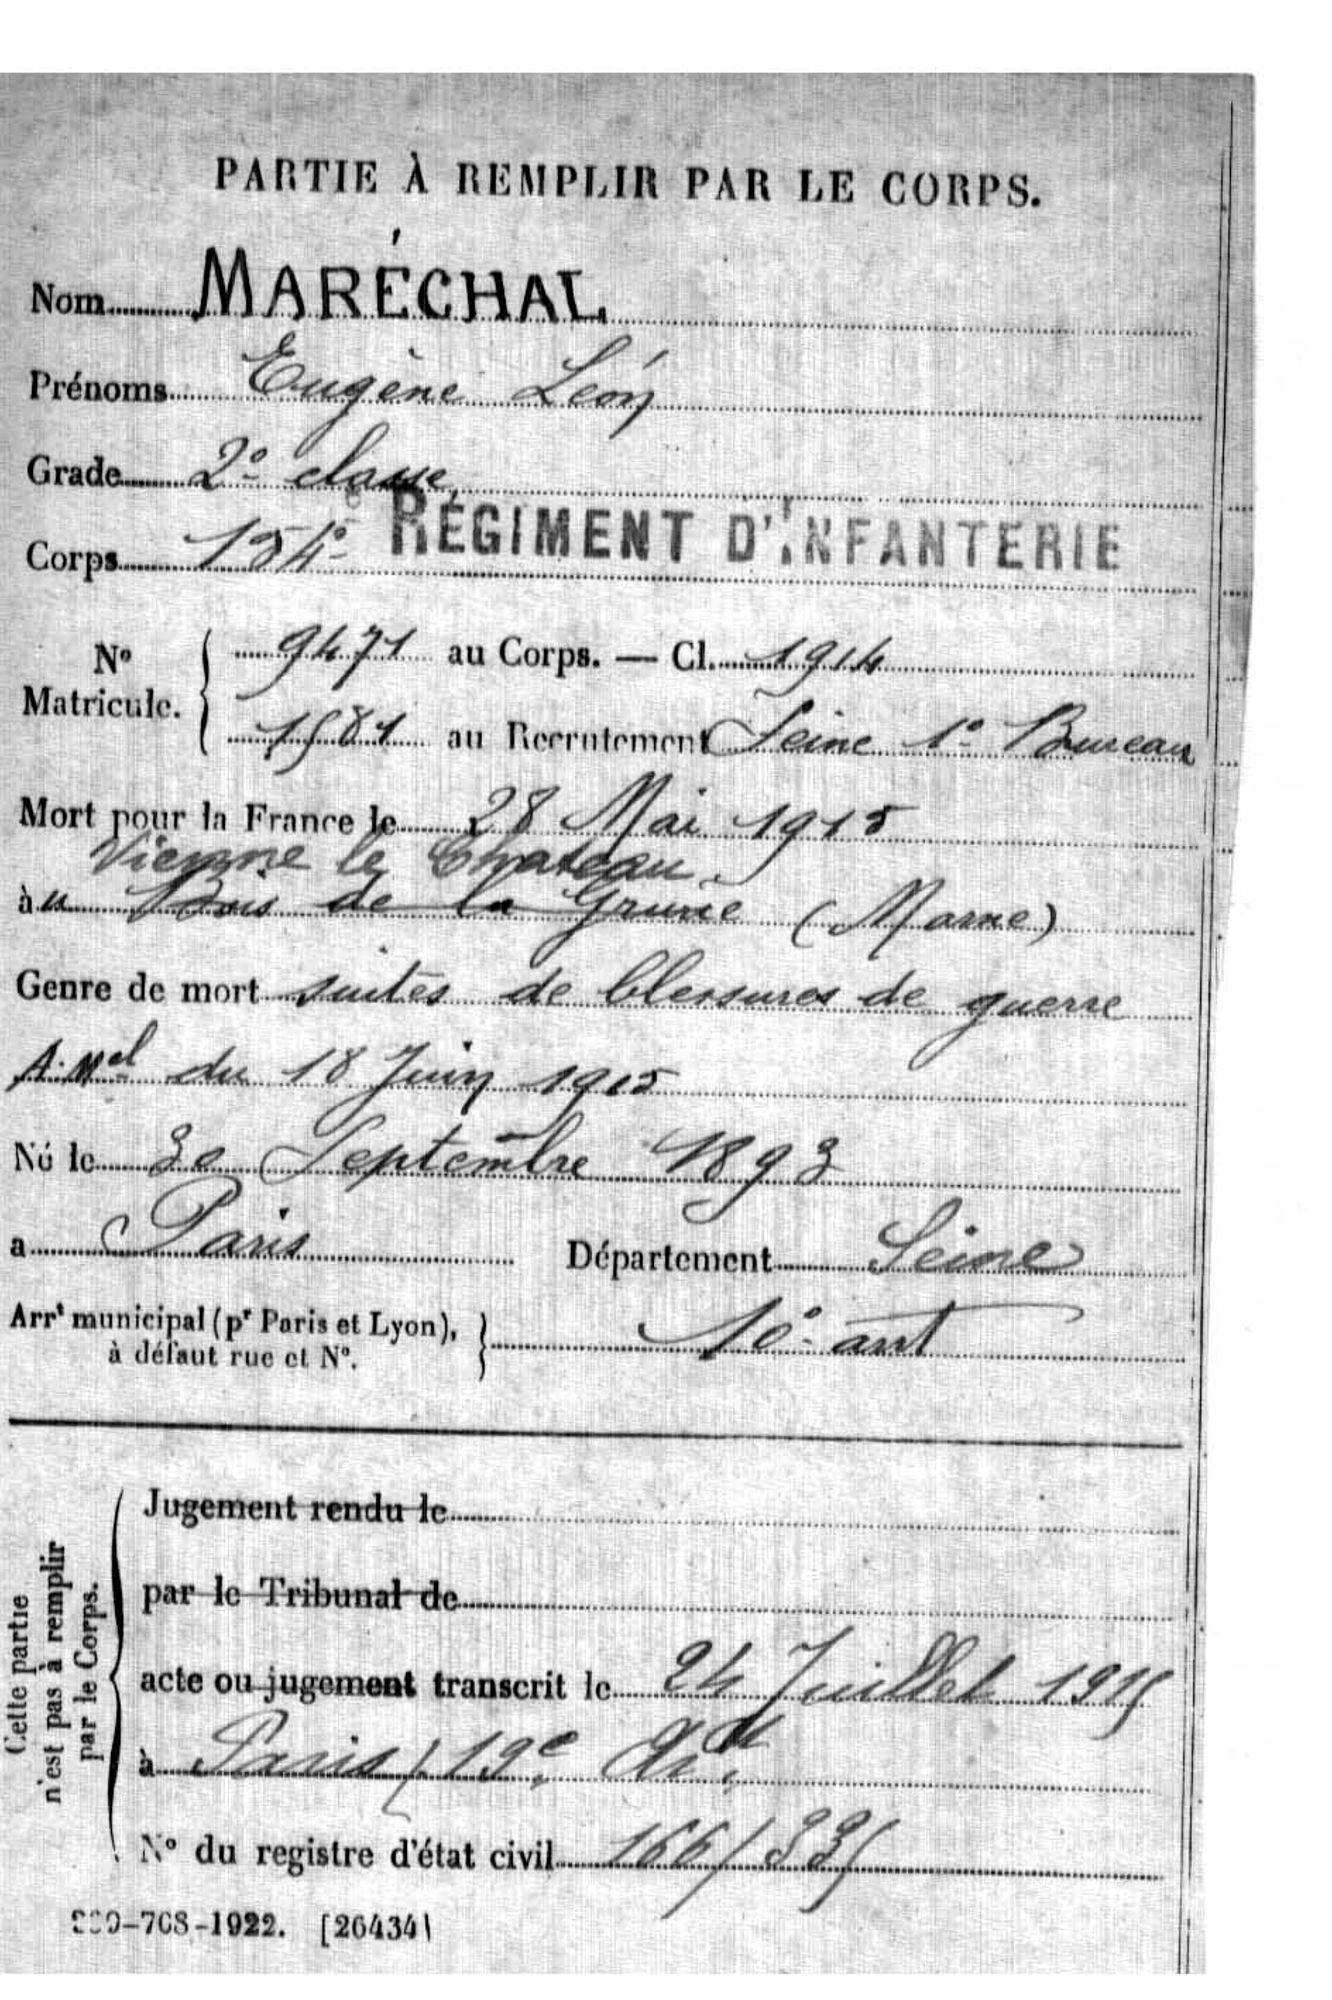 PARTIE À REMPLIR PAR LE CORPS.
Nom MARÉCHAL
Prénoms Eugène Léon
Grade 2e classe
Corps 154e RÉGIMENT D'INFANTERIE
No Matricule. 9471 au Corps. — Cl. 1914
1581 au Recrutement Seine 1e Bureau
Mort pour la France le 28 Mai 1915
Vienne le Chateau
àu Bois de la Grurie (Marne)
Genre de mort suites de blessures de guerre
A. Mel du 18 Juin 1915
Né le 30 Septembre 1893
a Paris Département Seine
Arrt municipal (pr Paris et Lyon), 10e arrt
à défaut rue et No.
Cette partie n'est pas à remplir par le Corps.
Jugement rendu le
par le Tribunal de
acte ou jugement transcrit le 24 Juillet 1915
à Paris (19e
No du registre d'état civil 166/335
-708-1922. [26434]